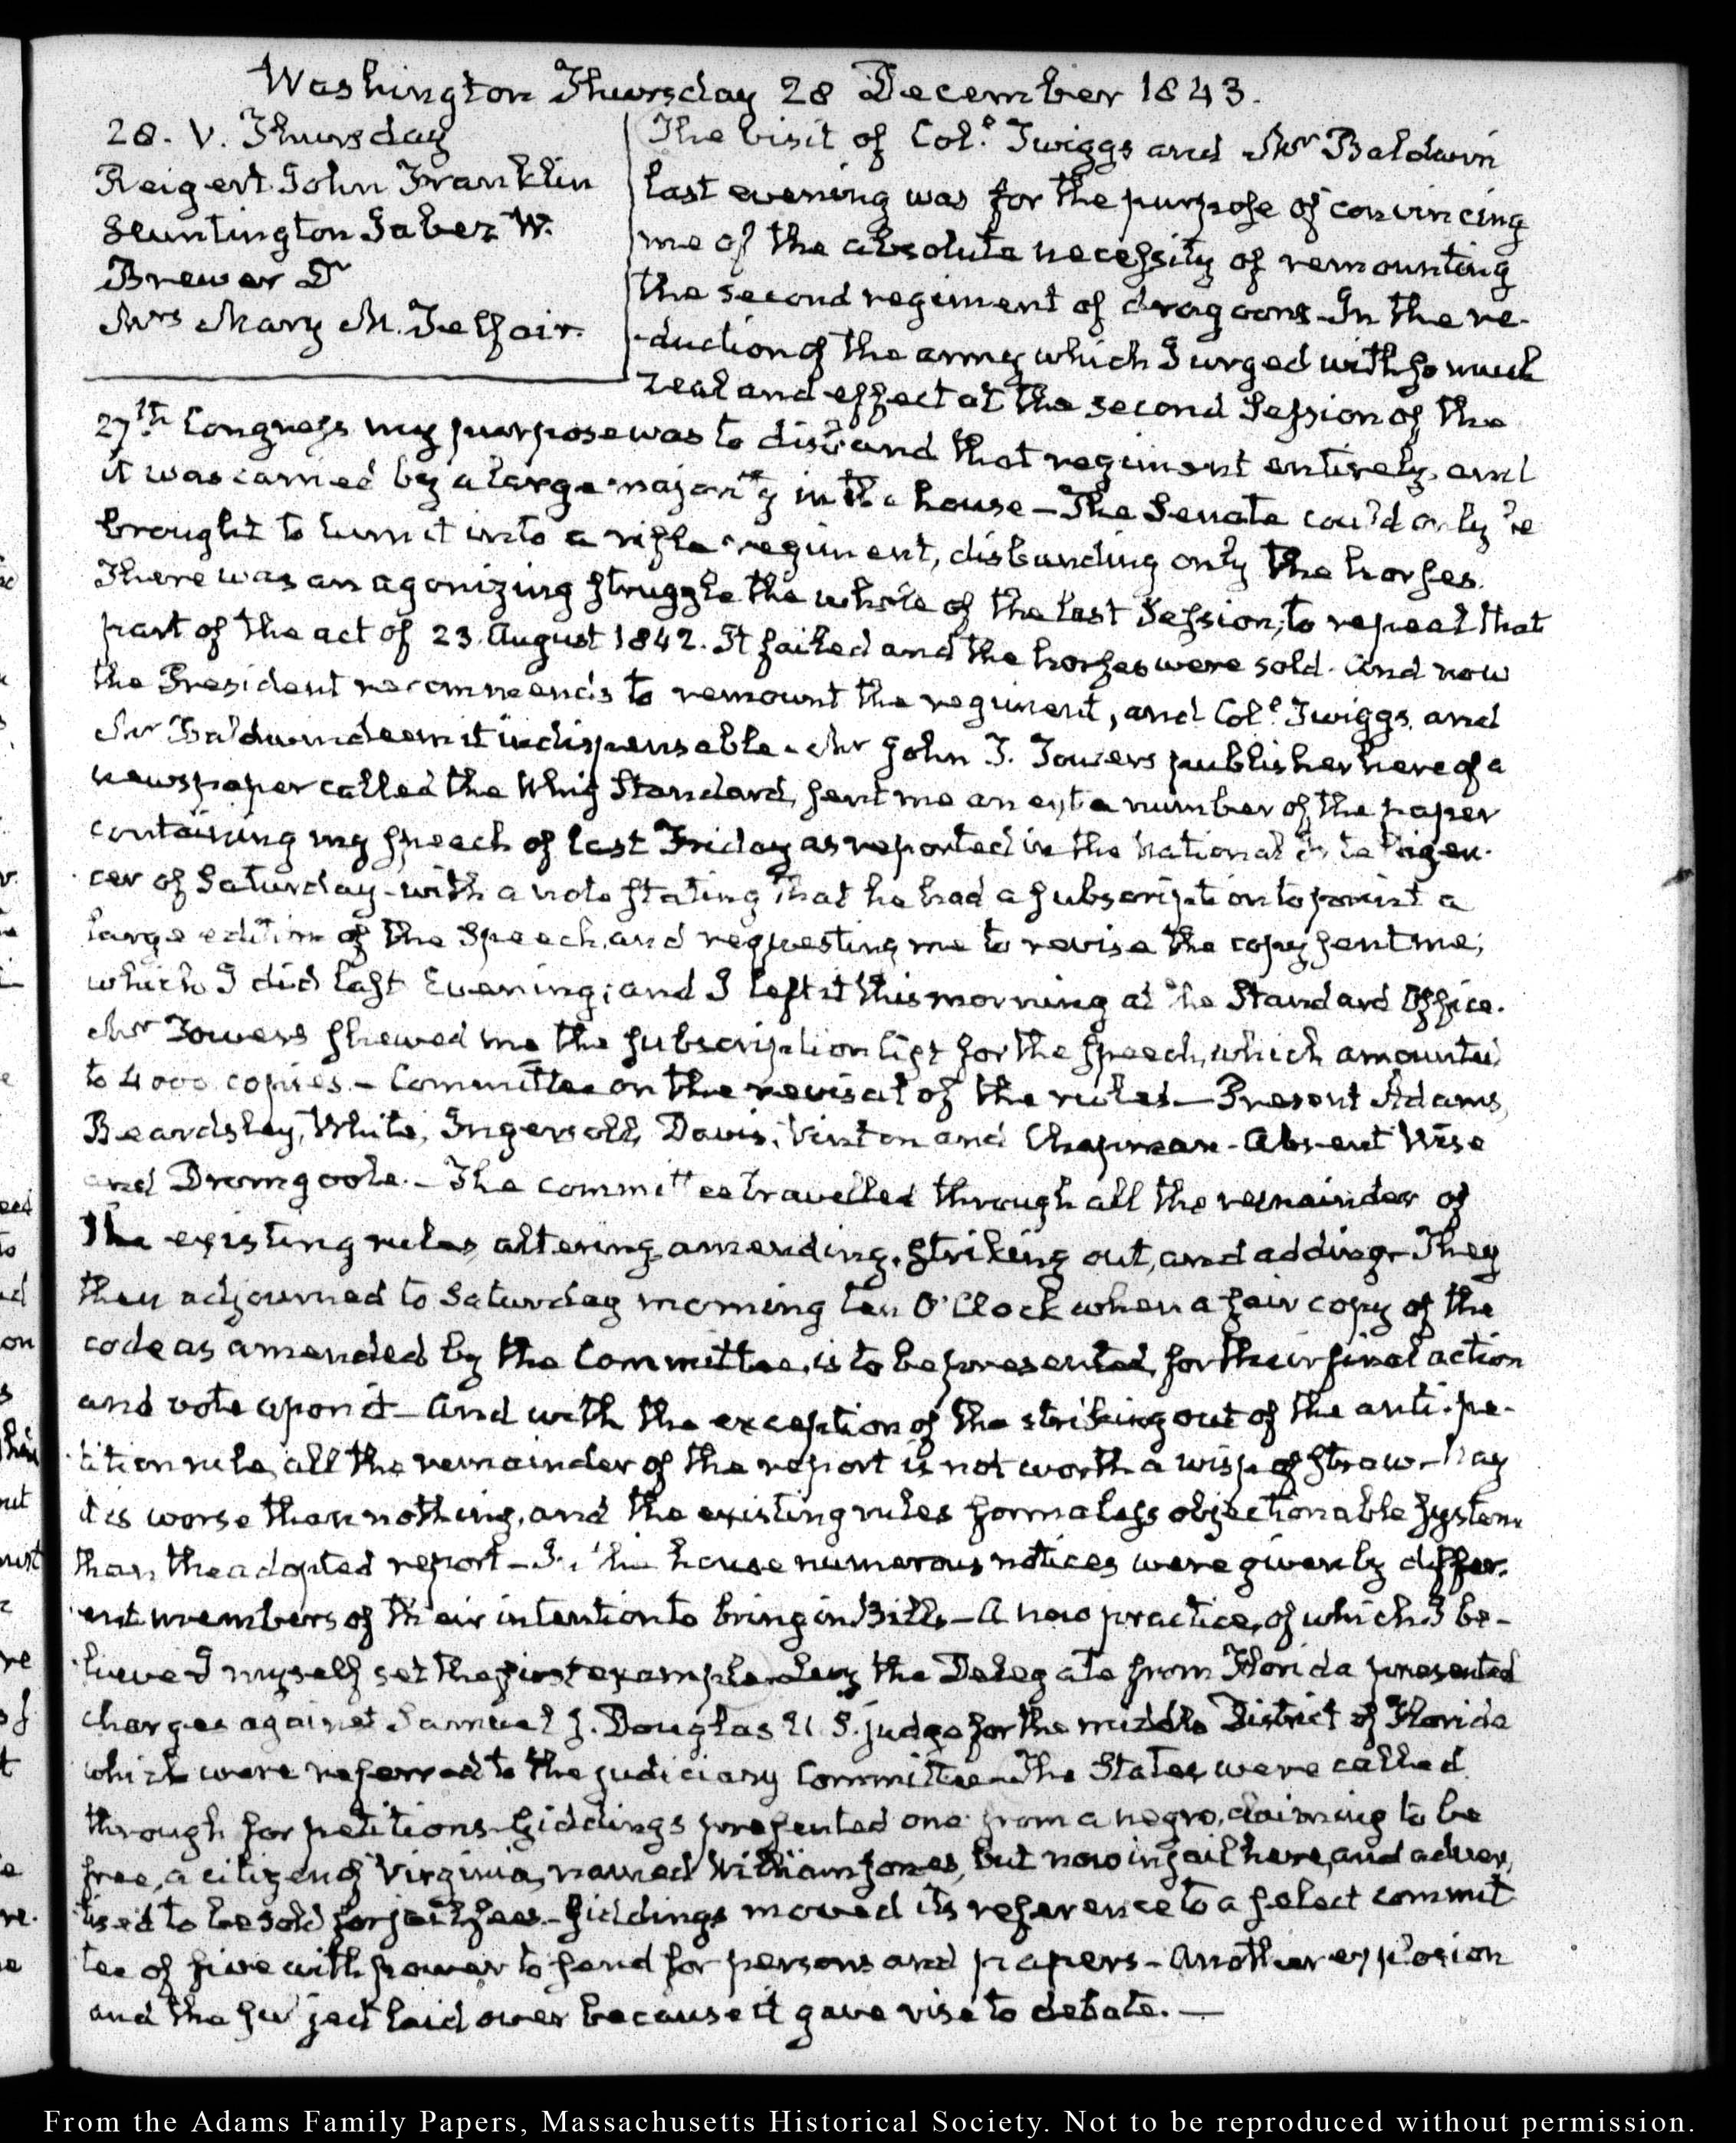 Washington Thursday 28 December 1843.
28. V. Thursday
Reigert John Franklin
Huntington Jabez W.
Brewer D
Mrs Mary M. Telfair.
The visit of Col.º Twiggs and Mr Baldwin
last evening was for the purpose of convincing
me of the absolute necessity of remounting
the second regiment of dragoons. In the re-
-duction of the army which I urged with so much
zeal and effect at the second Session of the
27th. Congress my purpose was to disband that regiment entirely, and
it was carried by a large majority in the house — The Senate could only be
brought to turn it into a rifle regiment, disbanding only the horses.
There was an agonizing struggle the whole of the last Session, to repeal that
part of the act of 23. August 1842. It failed and the horses were sold. And now
the President recommends to remount the regiment, and Col.º Twiggs, and
Mr Baldwin deem it indispensable. Mr John T. Towers publisher here of a
newspaper called the Whig Standard, sent me an extra number of the paper
containing my speech of last Friday as reported in the National Intelligen-
cer of Saturday – with a note stating that he had a subscription to print a
large edition of the Speech, and requesting me to revise the copy sent me;
which I did last Evening; and I left it this morning at the Standard Office.
Mr Towers shewed me the subscription list for the speech, which amounted
to 4000 copies. – Committee on the revisal of the rules — Present Adams,
Beardsley, White, Ingersoll, Davis, Vinton and Chapman – Absent Wise
and Dromgoole. – The committee travelled through all the remainder of
the existing rules altering, amending, striking out, and adding – They
then adjourned to Saturday morning ten O'Clock when a fair copy of the
code as amended by the Committee, is to be presented for their final action
and vote upon it – And with the exception of the striking out of the anti-pe-
tition rule, all the remainder of the report is not worth a wisp of straw – Nay
it is worse than nothing, and the existing rules form a less objectionable system
than the adopted report – In the house numerous notices were given by differ-
ent members of their intention to bring in Bills – A new practice, of which I be-
lieve I myself set the first example. Levy the Delegate from Florida presented
charges against Samuel J. Douglas U. S. judge for the middle District of Florida
which were referred to the judiciary Committee – The States were called
through for petitions – Giddings presented one from a negro, claiming to be
free, a citizen of Virginia, named William Jones, but now in jail here, and adver-
tised to be sold for jail fees – Giddings moved its reference to a select commit
tee of five with power to send for persons and papers – Another explosion
and the subject laid over because it gave rise to debate. —
From the Adams Family Papers, Massachusetts Historical Society. Not to be reproduced without permission.